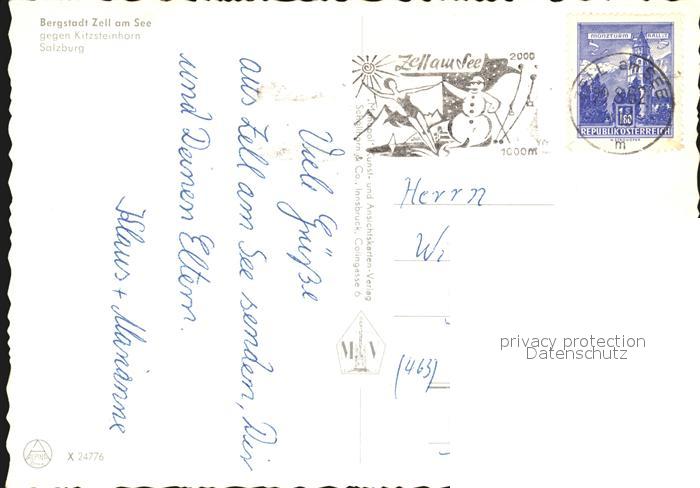 Bergstadt Zell am See
gegen Kitzsteinhorn
Salzburg
Viele Grüße
aus Zell am See senden, Dir
und Deinen Eltern.
Klaus + Marianne
X 24776
Kunst- und Ansichtskarten-Verlag
& Co., Innsbruck, Colingasse 6
Zell am See
2000
1000m
MÜNZTURM HALL I. T.
1.80
REPUBLIK ÖSTERREICH
Herrn
Wi
(463)
privacy protection
Datenschutz